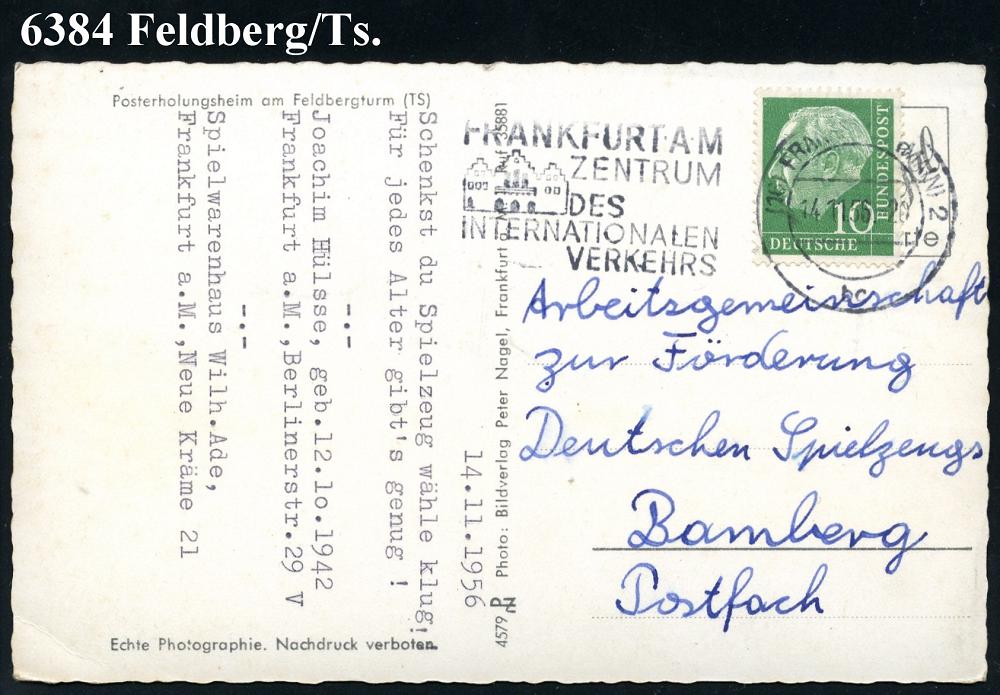 6384 Feldberg/Ts.
Posterholungsheim am Feldbergturm (TS)
14.11.1956
Schenkst du Spielzeug wähle klug!
Für jedes Alter gibt's genug !
-.-
Joachim Hülsse, geb.12.10.1942
Frankfurt a.M.,Berlinerstr.29 V
-.-
Spielwarenhaus Wilh.Ade,
Frankfurt a.M.,Neue Kräme 21
Echte Photographie. Nachdruck verboten.
4579 Photo: Bildverlag Peter Nagel, Frankfurt Ruf 35881
FRANKFURT A·M
ZENTRUM
DES
INTERNATIONALEN
VERKEHRS
DEUTSCHE
BUNDESPOST
10
FRANK (MAIN) 2
14.11.56
bc
Arbeitsgemeinschaft
zur Förderung
Deutschen Spielzeugs
Bamberg
Postfach